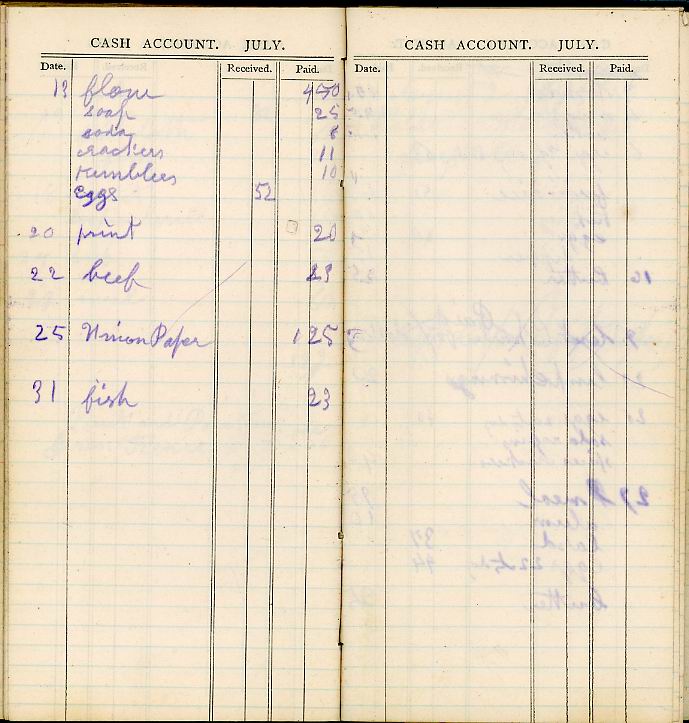 CASH ACCOUNT. JULY.
Date. Received. Paid.
13 flour 4 50
soap 25
soda 8
crackers 11
tumblers 10
eggs 52
20 print 20
22 beef 23
25 Union Paper 1 25
31 fish 23
CASH ACCOUNT. JULY.
Date. Received. Paid.